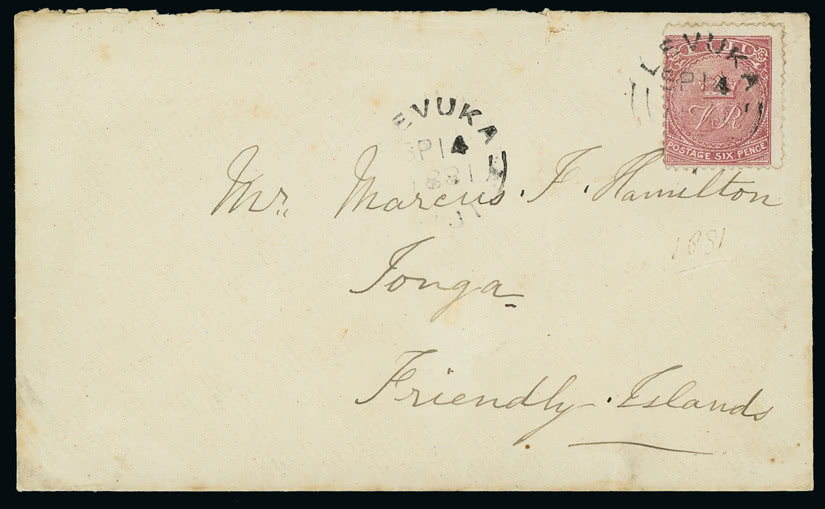 FIJI
V R
POSTAGE SIX PENCE
LEVUKA
SP 14
EVUKA
SP 14
1881
Mr. Marcus. F. Hamilton
1881
Tonga
Friendly. Islands